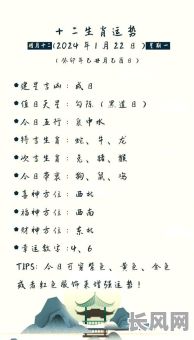 十二生肖运势
腊月十二(2024年1月22日)星期一
(癸卯年乙丑月乙酉日)
建星吉凶:成日
值日天星:勾陈(黑道日)
今日五行:泉中水
特吉生肖:蛇、牛、龙
次吉生肖:兔、猪、猴
今日带衰:狗、鼠、鸡
喜神方位:西北
福神方位:西南
财神方位:东北
幸运数字:4、6
TIPS:今日可穿紫色、黄色、金色
或者红色服饰来增强运势!
长风网